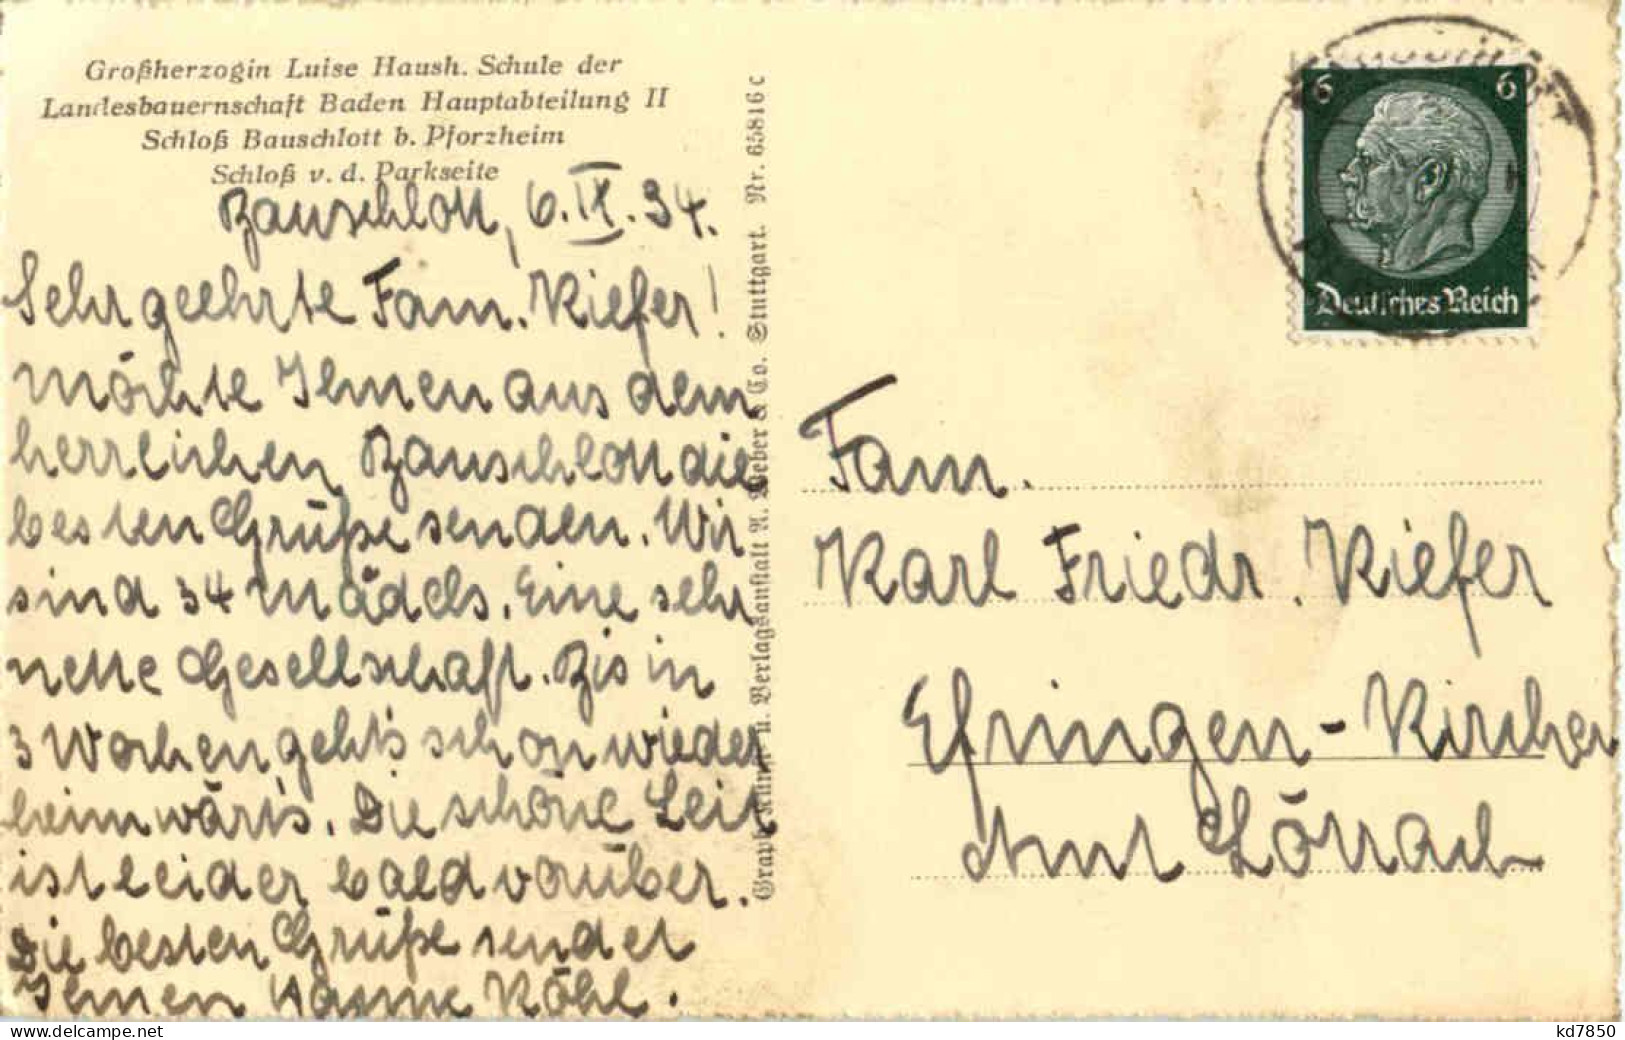 Großherzogin Luise Haush. Schule der
Landesbauernschaft Baden Hauptabteilung II
Schloß Bauschlott b. Pforzheim
Schloß v. d. Parkseite
Bauschlott, 6. IX. 34.
Sehr geehrte Fam. Kiefer!
möchte Ihnen aus dem
herrlichen Bauschlott die
besten Grüße senden. Wir
sind 34 Mädels. Eine sehr
nette Gesellschaft. Bis in
3 Wochen geht's schon wieder
heimwärts. Die schöne Zeit
ist leider bald vorüber.
Die besten Grüße sendet
Ihnen Köbl.
Graph. Kunst- u. Verlagsanstalt A. Weber & Co. Stuttgart. Nr. 65816 c
6 6
Deutsches Reich
Fam.
Karl Friedr. Kiefer
Efringen-Kirchen
Amt Lörrach
kd7850